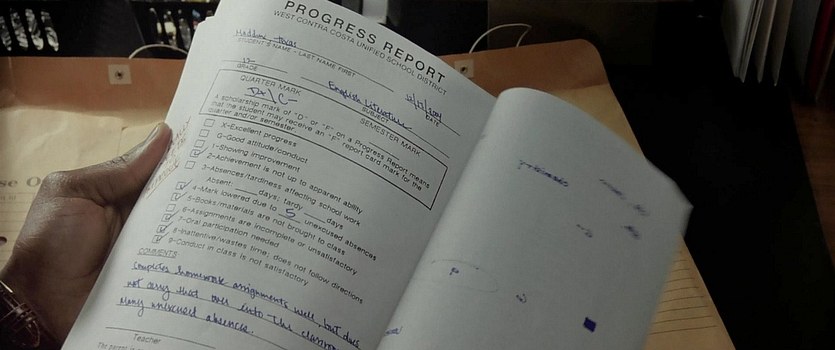 PROGRESS REPORT
WEST CONTRA COSTA UNIFIED SCHOOL DISTRICT
STUDENT'S NAME - LAST NAME FIRST
12
GRADE
English Literature
SUBJECT
DATE
QUARTER MARK
SEMESTER MARK
D+/C-
A scholarship mark of "D" or "F" on a Progress Report means
that the student may receive an "F" report card mark for the
quarter and/or semester.
X-Excellent progress
G-Good attitude/conduct
1-Showing improvement
2-Achievement is not up to apparent ability
3-Absences/tardiness affecting school work
Absent: days; tardy days
4-Mark lowered due to 5 unexcused absences
5-Books/materials are not brought to class
6-Assignments are incomplete or unsatisfactory
7-Oral participation needed
8-Inattentive/wastes time; does not follow directions
9-Conduct in class is not satisfactory
COMMENTS
Completes homework assignments well, but does
not carry that over into the classroom
Many unexcused absences.
Teacher